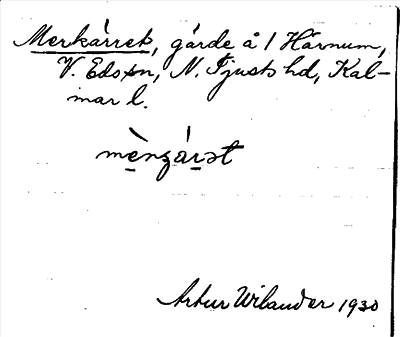 Merkärret, gärde å 1 Härnum,
V. Eds sn, N. Tjusts hd, Kal-
mar l.
mènʒárət
Artur Wilander 1930